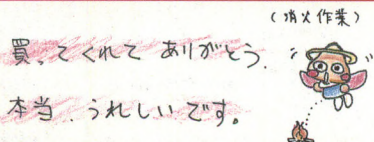 (消火作業)
買ってくれて ありがとう.
本当、うれしいです。